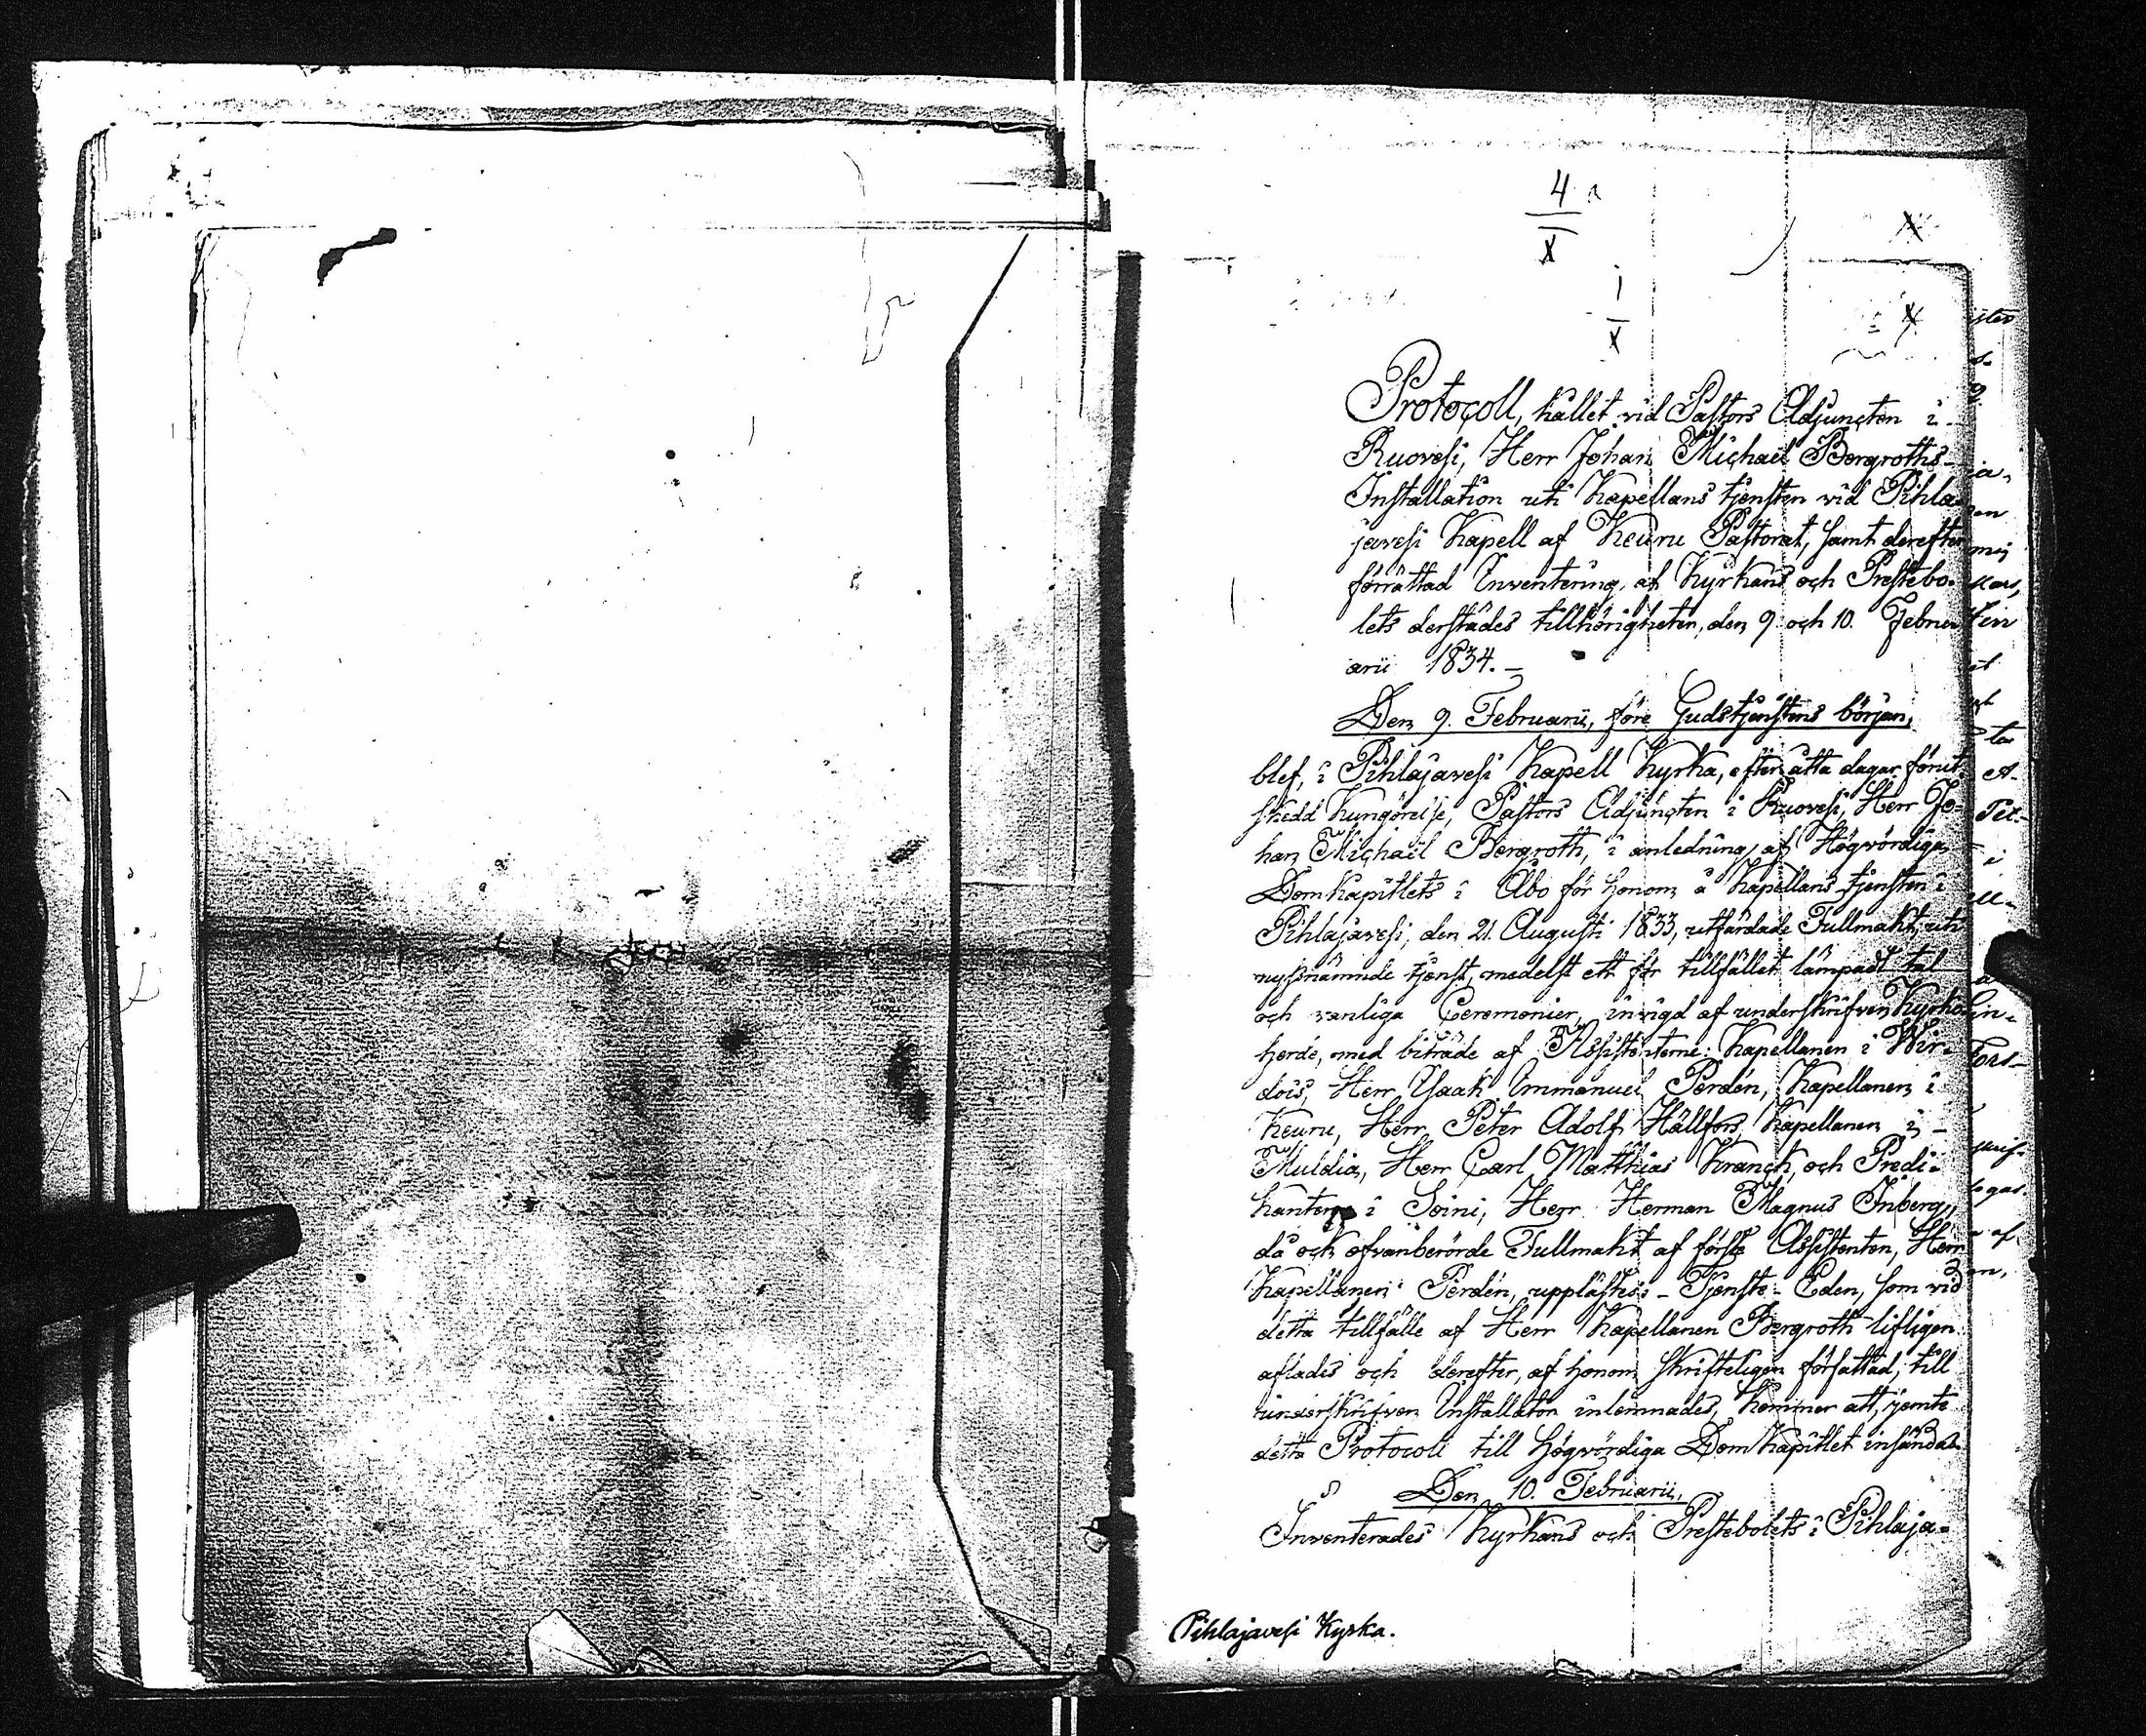 4
X
1
X
Protocoll, hållet vid Pastors Adjuncten i
Ruovesi, Herr Johan Michaël Bergroths
Installation uti Kapellans tjensten vid Pihla-
javesi Kapell af Keuru Pastorat, samt derefter
förrättad Inventering af Kyrkans och Prestebo-
lets derstädes tillhörigheter, den 9 och 10. Febru-
arii 1834.
Den 9. Februarii, före Gudstjenstens början,
blef, i Pihlajavesi Kapell Kyrka, efter åtta dagar förut
skedd kungörelse, Pastors Adjuncten i Ruovesi, Herr Jo-
han Michaël Bergroth, i anledning af Högvördiga
DomKapitlets i Åbo för honom å Kapellans tjensten i
Pihlajavesi, den 21. Augusti 1833, utfärdade Fullmakt, uti
nyssnämnde tjenst, medelst ett för tillfället lämpadt tal
och vanliga Ceremonier, invigd af underskrifven Kyrko-
herde, med biträde af Assistenterne: Kapellanen i Wir-
dois, Herr Isaak Immanuel Perdén, Kapellanen i
Keuru, Herr Peter Adolf Hällfors, Kapellanen i
Multia, Herr Carl Matthias Kranck, och Predi-
kanten i Soini, Herr Herman Magnus Inberg,
då ock ofvanberörde Fullmakt af förste Assistenten, Herr
Kapellanen Perdén, upplästes. Tjenste-Eden, som vid
detta tillfälle af Herr Kapellanen Bergroth lifligen
aflades och derefter, af honom skrifteligen författad, till
underskrifven Installator inlemnades, kommer att, jemte
detta Protocoll till Högvördiga DomKapitlet insändas
Den 10. Februarii,
Inventerades Kyrkans och Prestebolets i Pihlaja-
Pihlajavesi Kyrka.